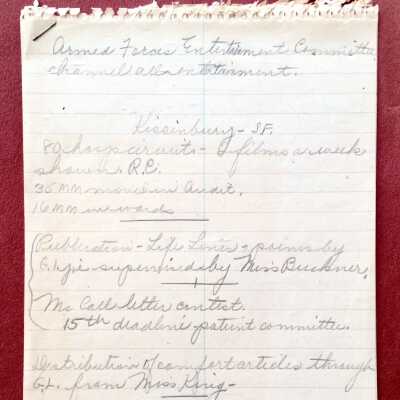 Armed Forces Entertainment Committee
channels all entertainment.
Kissinbury - S.F.
80 hosp circuits - films a week
shown. R.C.
35 MM movie in Audit.
16 MM in wards
Publication - Life Lines - poems by
G.I. supervised by Miss Buckner.
Mc Call letter contest.
15th deadline patient committee.
Distribution of comfort articles through
G.L. from Miss King -